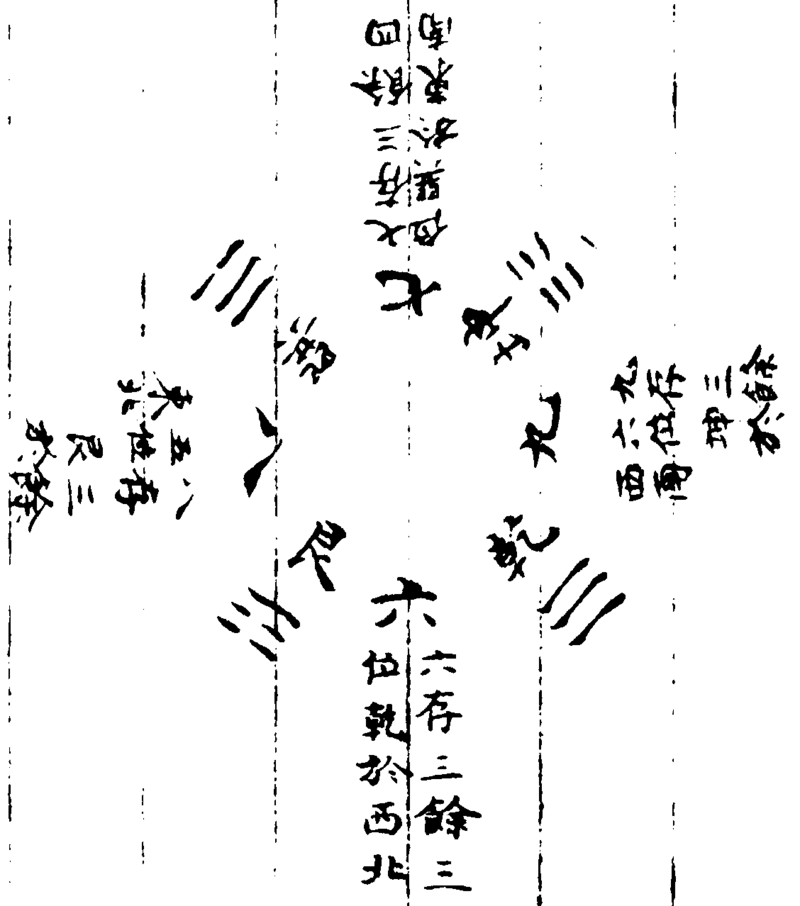 七存三餘四
位巽於東南
七
巽
坤
八
九
艮
乾
六
八存三餘
五位艮於
東北
九存三餘
六位坤於
西南
六存三餘三
位乾於西北